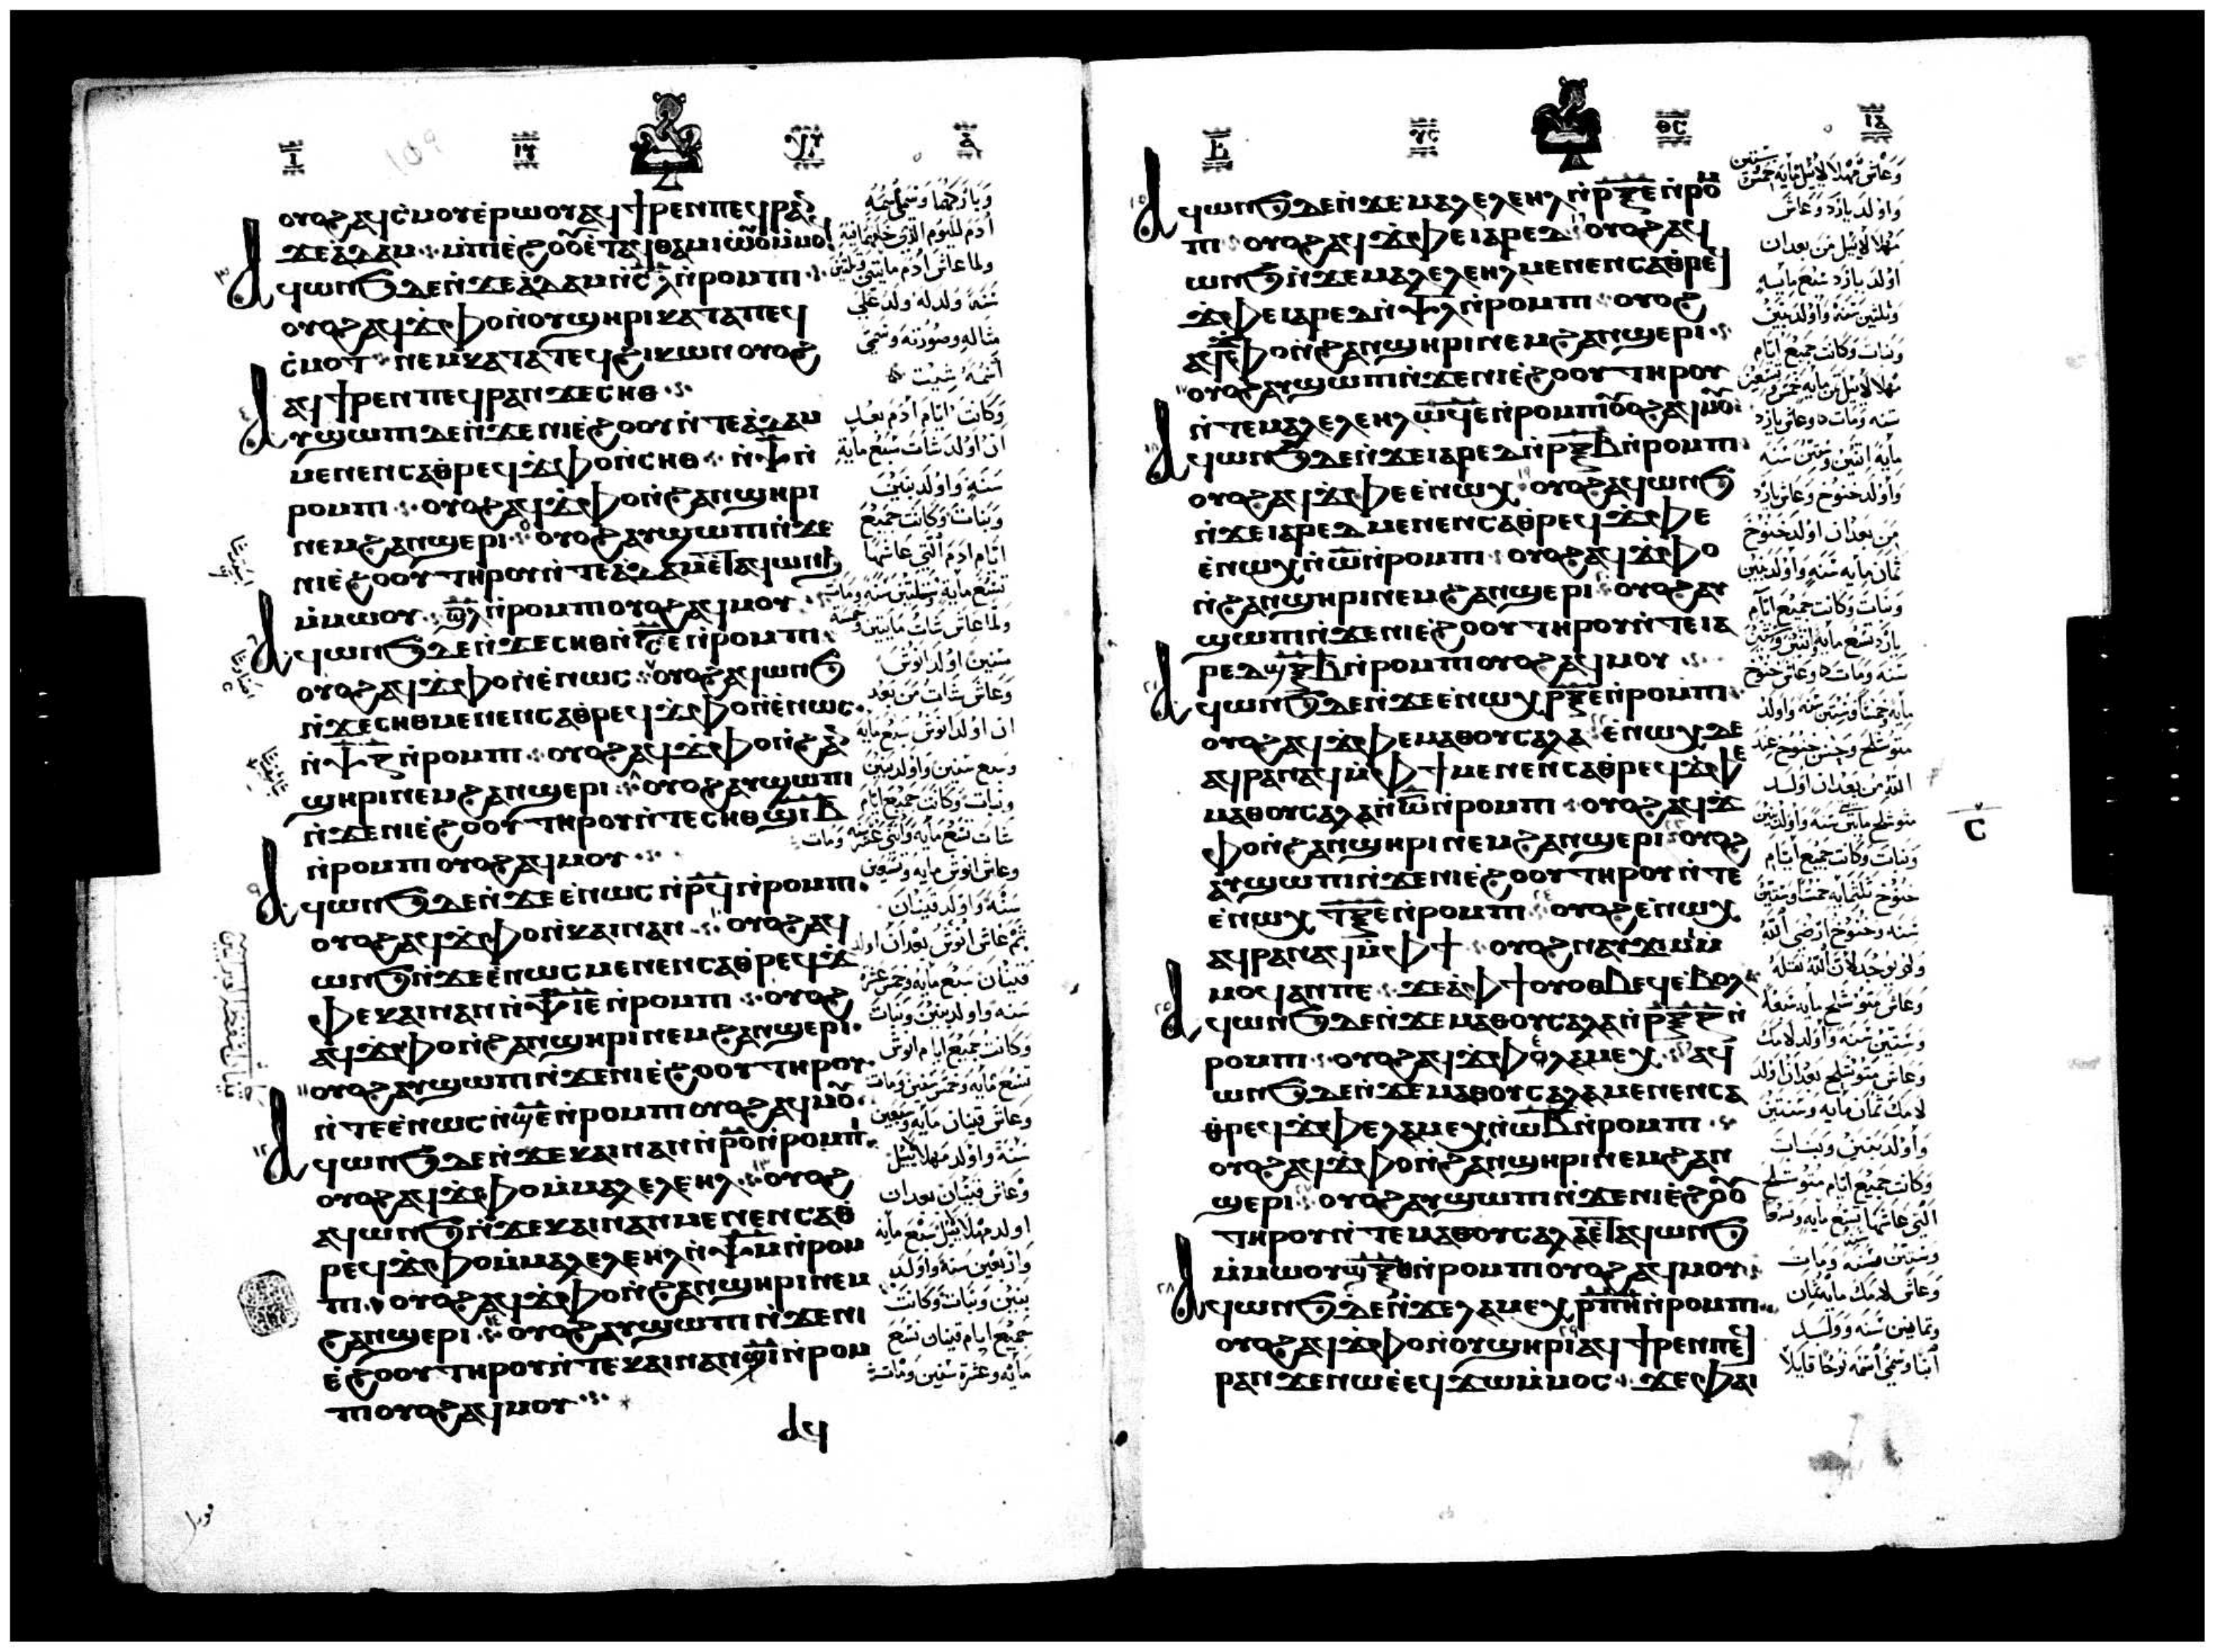 ⲟⲩⲟϩ ⲁϥⲥ̀ⲙⲟⲩ ⲉ̀ⲣⲱⲟⲩ ⲁϥϯⲣⲉⲛ ⲡⲉϥⲣⲁⲛ
ϫⲉ ⲁ̀ⲇⲁⲙ ⲙ̀ⲡⲓⲉ̀ϩⲟⲟⲩ ⲉ̀ⲧⲁϥⲑⲁⲙⲓⲱⲟⲩ ⲙ̀ⲙⲟϥ
ⲁϥⲱⲛϧ ⲇⲉ ⲛ̀ϫⲉ ⲁ̀ⲇⲁⲙ ⲛ̀ⲥⲗ ⲛ̀ⲣⲟⲙⲡⲓ
ⲟⲩⲟϩ ⲁϥϫ̀ⲫⲟ ⲛ̀ⲟⲩϣⲏⲣⲓ ⲕⲁⲧⲁ ⲡⲉϥ
ⲥ̀ⲙⲟⲧ ⲛⲉⲙ ⲕⲁⲧⲁ ⲧⲉϥϩⲓⲕⲱⲛ ⲟⲩⲟϩ
ⲁϥϯⲣⲉⲛ ⲡⲉϥⲣⲁⲛ ϫⲉ ⲥⲏⲑ
ⲁⲩϣⲱⲡⲓ ⲇⲉ ⲛ̀ϫⲉ ⲛⲓⲉ̀ϩⲟⲟⲩ ⲛ̀ⲧⲉ ⲁ̀ⲇⲁⲙ
ⲙⲉⲛⲉⲛⲥⲁ ⲑ̀ⲣⲉϥϫ̀ⲫⲟ ⲛ̀ⲥⲏⲑ ⲛ̀ⲯ ⲛ̀
ⲣⲟⲙⲡⲓ ⲟⲩⲟϩ ⲁϥϫ̀ⲫⲟ ⲛ̀ϩⲁⲛϣⲏⲣⲓ
ⲛⲉⲙ ϩⲁⲛϣⲉⲣⲓ ⲟⲩⲟϩ ⲁⲩϣⲱⲡⲓ ⲛ̀ϫⲉ
ⲛⲓⲉ̀ϩⲟⲟⲩ ⲧⲏⲣⲟⲩ ⲛ̀ⲧⲉ ⲁⲇⲁⲙ ⲉⲧⲁϥⲱⲛϧ
ⲙ̀ⲙⲱⲟⲩ ϣ̅ⲗ̅ ⲛ̀ⲣⲟⲙⲡⲓ ⲟⲩⲟϩ ⲁϥⲙⲟⲩ
ⲁϥⲱⲛϧ ⲇⲉ ⲛ̀ϫⲉ ⲥⲏⲑ ⲛ̀ⲥ̅ⲉ̅ ⲛ̀ⲣⲟⲙⲡⲓ
ⲟⲩⲟϩ ⲁϥϫ̀ⲫⲟ ⲛ̀ⲉ̀ⲛⲱⲥ ⲟⲩⲟϩ ⲁϥⲱⲛϧ
ⲛ̀ϫⲉ ⲥⲏⲑ ⲙⲉⲛⲉⲛⲥⲁ ⲑ̀ⲣⲉϥϫ̀ⲫⲟ ⲛ̀ⲉ̀ⲛⲱⲥ
ⲛ̀ⲯ̅ⲍ̅ ⲛ̀ⲣⲟⲙⲡⲓ ⲟⲩⲟϩ ⲁϥϫ̀ⲫⲟ ⲛ̀ϩⲁⲛ
ϣⲏⲣⲓ ⲛⲉⲙ ϩⲁⲛϣⲉⲣⲓ ⲟⲩⲟϩ ⲁⲩϣⲱⲡⲓ
ⲛ̀ϫⲉ ⲛⲓⲉ̀ϩⲟⲟⲩ ⲧⲏⲣⲟⲩ ⲛ̀ⲧⲉ ⲥⲏⲑ ϣ̅ⲓ̅ⲃ̅
ⲛ̀ⲣⲟⲙⲡⲓ ⲟⲩⲟϩ ⲁϥⲙⲟⲩ
ⲁϥⲱⲛϧ ⲇⲉ ⲛ̀ϫⲉ ⲉ̀ⲛⲱⲥ ⲛ̀ⲣ̅ϥ̅ ⲛ̀ⲣⲟⲙⲡⲓ
ⲟⲩⲟϩ ⲁϥϫ̀ⲫⲟ ⲛ̀ⲕⲁⲓⲛⲁⲛ ⲟⲩⲟϩ ⲁϥ
ⲱⲛϧ ⲛ̀ϫⲉ ⲉ̀ⲛⲱⲥ ⲙⲉⲛⲉⲛⲥⲁ ⲑ̀ⲣⲉϥϫ̀
ⲫⲉ ⲕⲁⲓⲛⲁⲛ ⲛ̀ⲯ̅ⲓ̅ⲉ̅ ⲛ̀ⲣⲟⲙⲡⲓ ⲟⲩⲟϩ
ⲁϥϫ̀ⲫⲟ ⲛ̀ϩⲁⲛϣⲏⲣⲓ ⲛⲉⲙ ϩⲁⲛϣⲉⲣⲓ
ⲟⲩⲟϩ ⲁⲩϣⲱⲡⲓ ⲛ̀ϫⲉ ⲛⲓⲉ̀ϩⲟⲟⲩ ⲧⲏⲣⲟⲩ
ⲛ̀ⲧⲉ ⲉ̀ⲛⲱⲥ ⲛ̀ϣ̅ⲉ̅ ⲛ̀ⲣⲟⲙⲡⲓ ⲟⲩⲟϩ ⲁϥⲙⲟⲩ
ⲁϥⲱⲛϧ ⲇⲉ ⲛ̀ϫⲉ ⲕⲁⲓⲛⲁⲛ ⲛ̀ⲣ̅ⲟ̅ ⲛ̀ⲣⲟⲙⲡⲓ
ⲟⲩⲟϩ ⲁϥϫ̀ⲫⲟ ⲙ̀ⲙⲁⲗⲉⲗⲉⲏⲗ ⲟⲩⲟϩ
ⲁϥⲱⲛϧ ⲛ̀ϫⲉ ⲕⲁⲓⲛⲁⲛ ⲙⲉⲛⲉⲛⲥⲁ ⲑ̀
ⲣⲉϥϫ̀ⲫⲟ ⲙ̀ⲙⲁⲗⲉⲗⲉⲏⲗ ⲛ̀ⲯ̅ⲙ̅ ⲛ̀ⲣⲟⲙ
ⲡⲓ ⲟⲩⲟϩ ⲁϥϫ̀ⲫⲟ ⲛ̀ϩⲁⲛϣⲏⲣⲓ ⲛⲉⲙ
ϩⲁⲛϣⲉⲣⲓ ⲟⲩⲟϩ ⲁⲩϣⲱⲡⲓ ⲛ̀ϫⲉ ⲛⲓ
ⲉ̀ϩⲟⲟⲩ ⲧⲏⲣⲟⲩ ⲛ̀ⲧⲉ ⲕⲁⲓⲛⲁⲛ ϣ̅ⲓ̅ ⲛ̀ⲣⲟⲙ
ⲡⲓ ⲟⲩⲟϩ ⲁϥⲙⲟⲩ
ⲁϥ
وباركهما وسمى اسمه
ادم لليوم الذي خلقهما فيه
ولما عاش ادم مايتي وتلتين
سنة ولد له ولد على
مثاله وصورته وسمى
اسمه شيت
وكانت ايام ادم بعد
ان اولد شات سبع مايه
سنه واولد بنين
وبنات وكانت جميع
ايام ادم التي عاشها
تسع مايه وتلتين سنه ومات
ولما عاش شات مايتين وخمسه
سنين اولد انوش
وعاش شات من بعد
ان اولد انوش سبع مايه
وسبع سنين واولد بنين
وبنات وكانت جميع ايام
شات تسع مايه واثني عشر سنه ومات
وعاش انوش مايه وتسعين
سنه واولد قينان
ثم عاش انوش بعد ان اولد
قينان سبع مايه وخمس عشرة
سنه واولد بنين وبنات
وكانت جميع ايام انوش
تسع مايه وخمس سنين ومات
وعاش قينان مايه وسبعين
سنة واولد مهلالاييل
وعاش قينان بعد ان
اولد مهلالاييل سبع مايه
واربعين سنة واولد
بنين وبنات وكانت
جميع ايام قينان تسع
مايه وعشرة سنين ومات
ⲁϥⲱⲛϧ ⲇⲉ ⲛ̀ϫⲉ ⲙⲁⲗⲉⲗⲉⲏⲗ ⲛ̀ⲣ̅ⲝ̅ⲉ̅ ⲛ̀ⲣⲟⲙ
ⲡⲓ ⲟⲩⲟϩ ⲁϥϫ̀ⲫⲉ ⲓⲁⲣⲉⲇ ⲟⲩⲟϩ ⲁϥ
ⲱⲛϧ ⲛ̀ϫⲉ ⲙⲁⲗⲉⲗⲉⲏⲗ ⲙⲉⲛⲉⲛⲥⲁ ⲑ̀ⲣⲉϥ
ϫ̀ⲫⲉ ⲓⲁⲣⲉⲇ ⲛ̀ⲯ̅ⲗ̅ ⲛ̀ⲣⲟⲙⲡⲓ ⲟⲩⲟϩ
ⲁϥϫ̀ⲫⲟ ⲛ̀ϩⲁⲛϣⲏⲣⲓ ⲛⲉⲙ ϩⲁⲛϣⲉⲣⲓ
ⲟⲩⲟϩ ⲁⲩϣⲱⲡⲓ ⲛ̀ϫⲉ ⲛⲓⲉ̀ϩⲟⲟⲩ ⲧⲏⲣⲟⲩ
ⲛ̀ⲧⲉ ⲙⲁⲗⲉⲗⲉⲏⲗ ⲱ̅ϥ̅ⲉ̅ ⲛ̀ⲣⲟⲙⲡⲓ ⲟⲩⲟϩ ⲁϥⲙⲟⲩ
ⲁϥⲱⲛϧ ⲇⲉ ⲛ̀ϫⲉ ⲓⲁⲣⲉⲇ ⲛ̀ⲣ̅ⲝ̅ⲃ̅ ⲛ̀ⲣⲟⲙⲡⲓ
ⲟⲩⲟϩ ⲁϥϫ̀ⲫⲉ ⲉ̀ⲛⲱⲭ ⲟⲩⲟϩ ⲁϥⲱⲛϧ
ⲛ̀ϫⲉ ⲓⲁⲣⲉⲇ ⲙⲉⲛⲉⲛⲥⲁ ⲑ̀ⲣⲉϥϫ̀ⲫⲉ
ⲉ̀ⲛⲱⲭ ⲛ̀ⲱ̅ ⲛ̀ⲣⲟⲙⲡⲓ ⲟⲩⲟϩ ⲁϥϫ̀ⲫⲟ
ⲛ̀ϩⲁⲛϣⲏⲣⲓ ⲛⲉⲙ ϩⲁⲛϣⲉⲣⲓ ⲟⲩⲟϩ ⲁⲩ
ϣⲱⲡⲓ ⲛ̀ϫⲉ ⲛⲓⲉ̀ϩⲟⲟⲩ ⲧⲏⲣⲟⲩ ⲛ̀ⲧⲉ ⲓⲁ
ⲣⲉⲇ ϣ̅ⲝ̅ⲃ̅ ⲛ̀ⲣⲟⲙⲡⲓ ⲟⲩⲟϩ ⲁϥⲙⲟⲩ
ⲁϥⲱⲛϧ ⲇⲉ ⲛ̀ϫⲉ ⲉⲛⲱⲭ ⲣ̅ⲝ̅ⲉ̅ ⲛ̀ⲣⲟⲙⲡⲓ
ⲟⲩⲟϩ ⲁϥϫ̀ⲫⲉ ⲙⲁⲑⲟⲩⲥⲁⲗⲁ ⲉ̀ⲛⲱⲭ ⲇⲉ
ⲁϥⲣⲁⲛⲁϥ ⲙ̀ⲫϯ ⲙⲉⲛⲉⲛⲥⲁ ⲑ̀ⲣⲉϥϫ̀ⲫⲉ
ⲙⲁⲑⲟⲩⲥⲁⲗⲁ ⲛ̀ⲱ̅ ⲛ̀ⲣⲟⲙⲡⲓ ⲟⲩⲟϩ ⲁϥϫ̀
ⲫⲟ ⲛ̀ϩⲁⲛϣⲏⲣⲓ ⲛⲉⲙ ϩⲁⲛϣⲉⲣⲓ ⲟⲩⲟϩ
ⲁⲩϣⲱⲡⲓ ⲛ̀ϫⲉ ⲛⲓⲉ̀ϩⲟⲟⲩ ⲧⲏⲣⲟⲩ ⲛ̀ⲧⲉ
ⲉ̀ⲛⲱⲭ ⲧ̅ⲝ̅ⲉ̅ ⲛ̀ⲣⲟⲙⲡⲓ ⲟⲩⲟϩ ⲉ̀ⲛⲱⲭ
ⲁϥⲣⲁⲛⲁϥ ⲙ̀ⲫϯ ⲟⲩⲟϩ ⲛⲁⲩϫⲓⲙⲓ ⲙ̀
ⲙⲟϥ ⲁⲛ ⲡⲉ ϫⲉ ⲁ̀ ⲫϯ ⲟⲩⲟⲑⲃⲉϥ ⲉ̀ⲃⲟⲗ
ⲁϥⲱⲛϧ ⲇⲉ ⲛ̀ϫⲉ ⲙⲁⲑⲟⲩⲥⲁⲗⲁ ⲛ̀ⲣ̅ⲝ̅ⲍ̅ ⲛ̀
ⲣⲟⲙⲡⲓ ⲟⲩⲟϩ ⲁϥϫ̀ⲫⲉ ⲗⲁⲙⲉⲭ ⲁϥ
ⲱⲛϧ ⲇⲉ ⲛ̀ϫⲉ ⲙⲁⲑⲟⲩⲥⲁⲗⲁ ⲙⲉⲛⲉⲛⲥⲁ
ⲑ̀ⲣⲉϥϫ̀ⲫⲉ ⲗⲁⲙⲉⲭ ⲛ̀ⲱ̅ⲃ̅ ⲛ̀ⲣⲟⲙⲡⲓ
ⲟⲩⲟϩ ⲁϥϫ̀ⲫⲟ ⲛ̀ϩⲁⲛϣⲏⲣⲓ ⲛⲉⲙ ϩⲁⲛ
ϣⲉⲣⲓ ⲟⲩⲟϩ ⲁⲩϣⲱⲡⲓ ⲛ̀ϫⲉ ⲛⲓⲉ̀ϩⲟⲟⲩ
ⲧⲏⲣⲟⲩ ⲛ̀ⲧⲉ ⲙⲁⲑⲟⲩⲥⲁⲗⲁ ⲉⲧⲁϥⲱⲛϧ
ⲙ̀ⲙⲱⲟⲩ ϣ̅ⲝ̅ⲑ̅ ⲛ̀ⲣⲟⲙⲡⲓ ⲟⲩⲟϩ ⲁϥⲙⲟⲩ
ⲁϥⲱⲛϧ ⲇⲉ ⲛ̀ϫⲉ ⲗⲁⲙⲉⲭ ⲣ̅ⲡ̅ⲏ̅ ⲛ̀ⲣⲟⲙⲡⲓ
ⲟⲩⲟϩ ⲁϥϫ̀ⲫⲟ ⲛ̀ⲟⲩϣⲏⲣⲓ ⲁϥϯⲣⲉⲛ ⲡⲉϥ
ⲣⲁⲛ ϫⲉ ⲛⲱⲉ̀ ⲉϥϫⲱ ⲙ̀ⲙⲟⲥ ϫⲉ ⲫⲁⲓ
وعاش مهلالاييل مايه خمسة وستين
واولد يارد وعاش
مهلالاييل من بعد ان
اولد يارد سبع مايه
وتلتين سنه واولد بنين
وبنات وكانت جميع ايام
سنه ومات وعاش يارد
مايه اتنين وستين سنه
واولد خنوخ وعاش يارد
من بعد ان اولد خنوخ
تمان مايه سنه واولد بنين
وبنات وكانت جميع ايام
يارد تسع مايه واتنين وستين
سنه ومات وعاش خنوخ
مايه خمسا وستين سنه واولد
الله من بعد ان اولد
متوشلح مايتين سنه واولد بنين
وبنات وكانت جميع ايام
خنوخ تلتمايه خمسا وستين
سنه وخنوخ ارضى الله
ولم يوجد لان الله نقله
وعاش متوشلح مايه سبعة
وستين سنه واولد لامك
وعاش متوشلح بعد ان اولد
لامك تمان مايه وسنتين
واولد بنين وبنات
وكانت جميع ايام متوشلح
التي عاشها تسع مايه وتسعة
وستين سنه ومات
وعاش لامك مايه تمان
وتمانين سنه وولد
ابنا وسمى اسمه نوحا قايلا